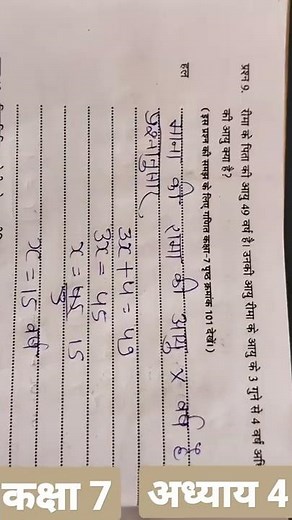 प्रश्न 9. रीमा के पिता की आयु 49 वर्ष है। उनकी आयु रीमा के आयु के 3 गुने से 4 वर्ष अधि
की आयु क्या है?
(इस प्रश्न की समझ के लिए गणित कक्षा-7 पृष्ठ क्रमांक 101 देखें।)
हल माना की रीमा की आयु x वर्ष है
प्रश्नानुसार,
3x + 4 = 49
3x = 45
x = 45 15
3
x = 15 वर्ष
कक्षा 7
अध्याय 4